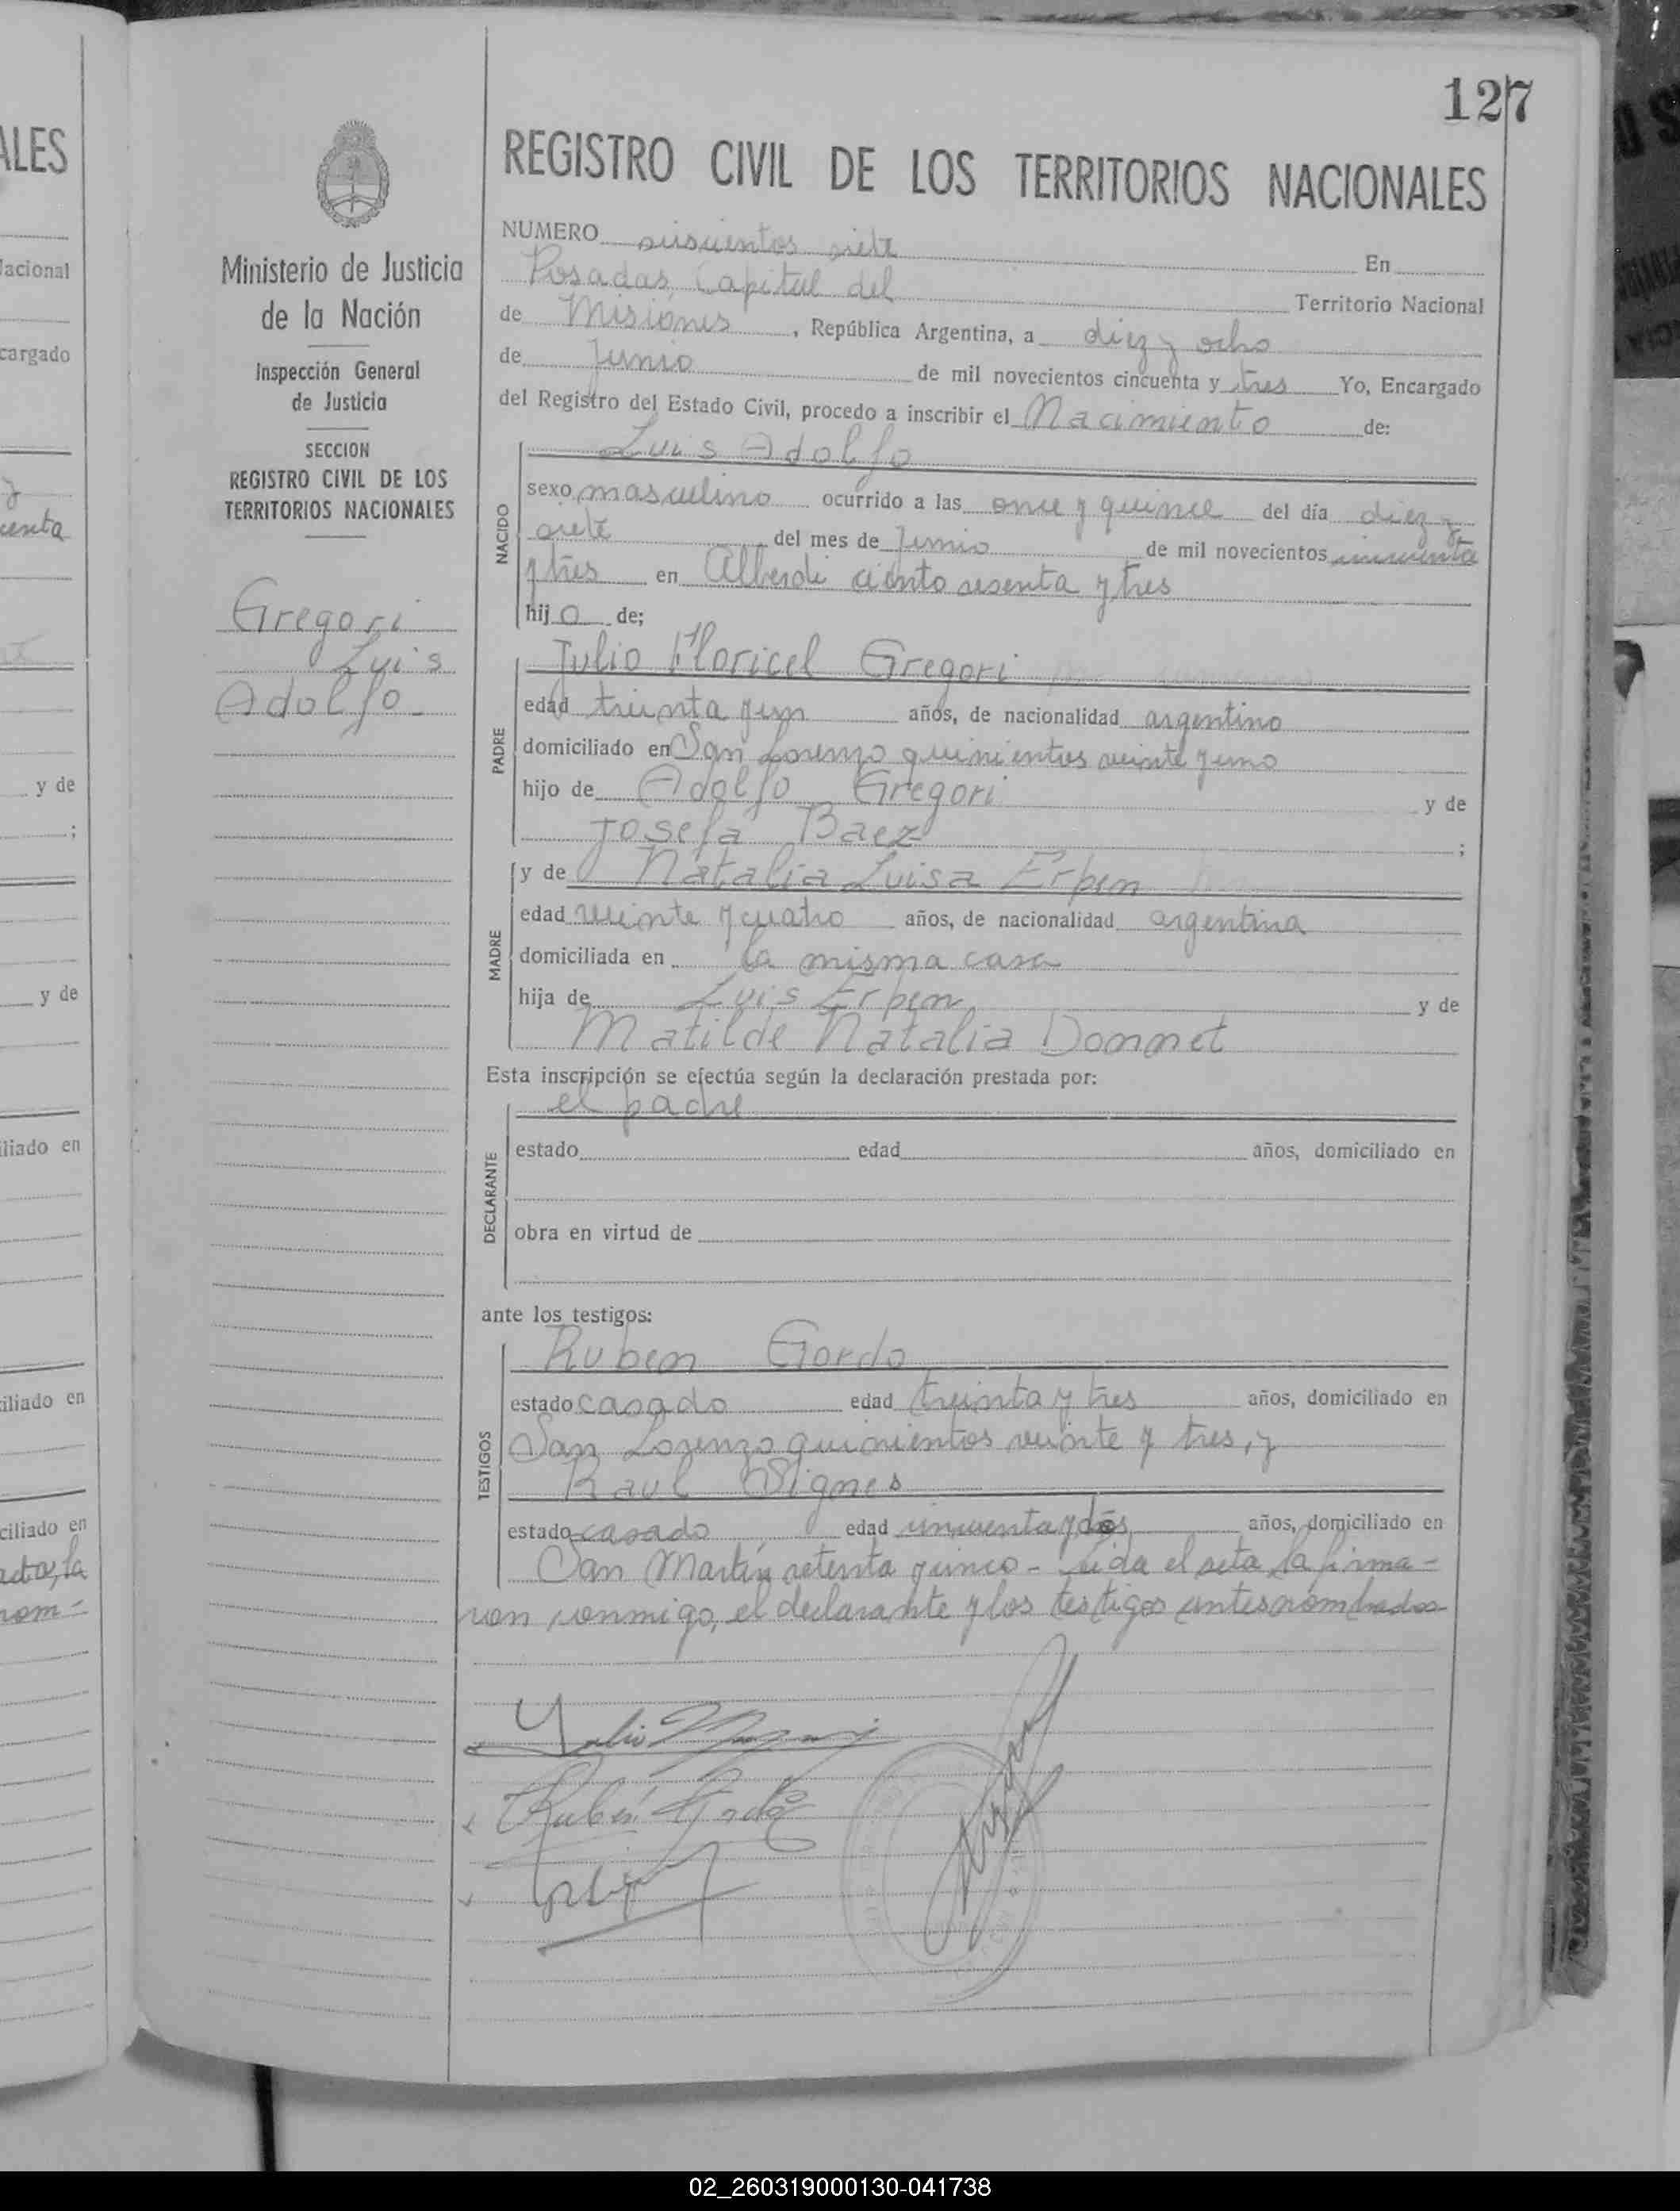 127
ALES
REGISTRO CIVIL DE LOS TERRITORIOS NACIONALES
Ministerio de Justicia
de la Nación
Inspección General
de Justicia
SECCION
REGISTRO CIVIL DE LOS
TERRITORIOS NACIONALES
Gregori
Luis
Adolfo-
NUMERO siete En
Posadas, Capital del Territorio Nacional
de Misiones, República Argentina, a diez y ocho
de Junio de mil novecientos cincuenta y tres Yo, Encargado
del Registro del Estado Civil, procedo a inscribir el Nacimiento de:
NACIDO
Luis Adolfo
sexo masculino ocurrido a las once y quince del día diez y
siete del mes de Junio de mil novecientos cincuenta
y tres en Alberdi ciento sesenta y tres
hijo de;
PADRE
Julio Floricel Gregori
edad treinta y un años, de nacionalidad argentino
domiciliado en San Lorenzo quinientos veinte y uno
hijo de Adolfo Gregori y de
Josefa Baez ;
MADRE
y de Natalia Luisa Erpen
edad veinte y cuatro años, de nacionalidad argentina
domiciliada en la misma casa
hija de Luis Erpen y de
Matilde Natalia Donnet
Esta inscripción se efectúa según la declaración prestada por:
DECLARANTE
el padre
estado edad años, domiciliado en
obra en virtud de
ante los testigos:
TESTIGOS
Ruben Gordo
estado casado edad treinta y tres años, domiciliado en
San Lorenzo quinientos veinte y tres, y
Raul Signes
estado casado edad cincuenta y dos años, domiciliado en
San Martín setenta y cinco - Leída el acta la firma-
ron conmigo, el declarante y los testigos antes nombrados
lacional
cargado
y de
;
y de
iliado en
ciliado en
ciliado en
acta, la
nom-
02_260319000130-041738